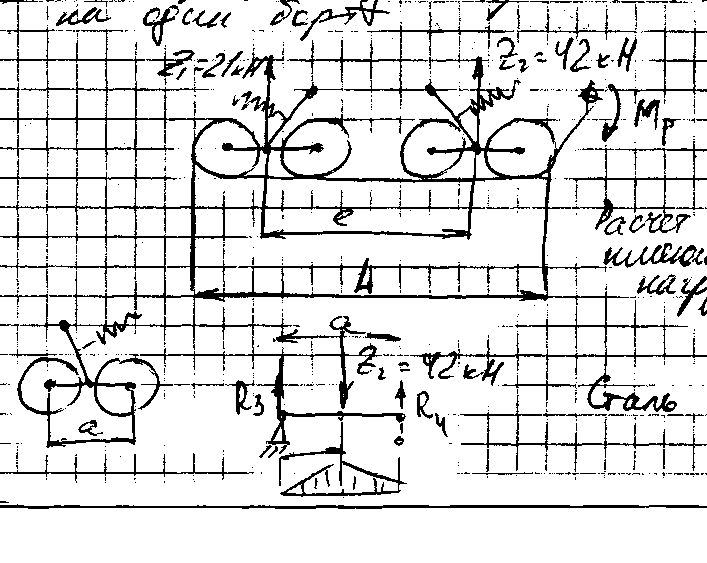 на один борт
Z₁=21кН
Z₂=42кН
Mр
e
L
Расчет
нагр
a
a
Z₂=42кН
R₃
R₄
Сталь